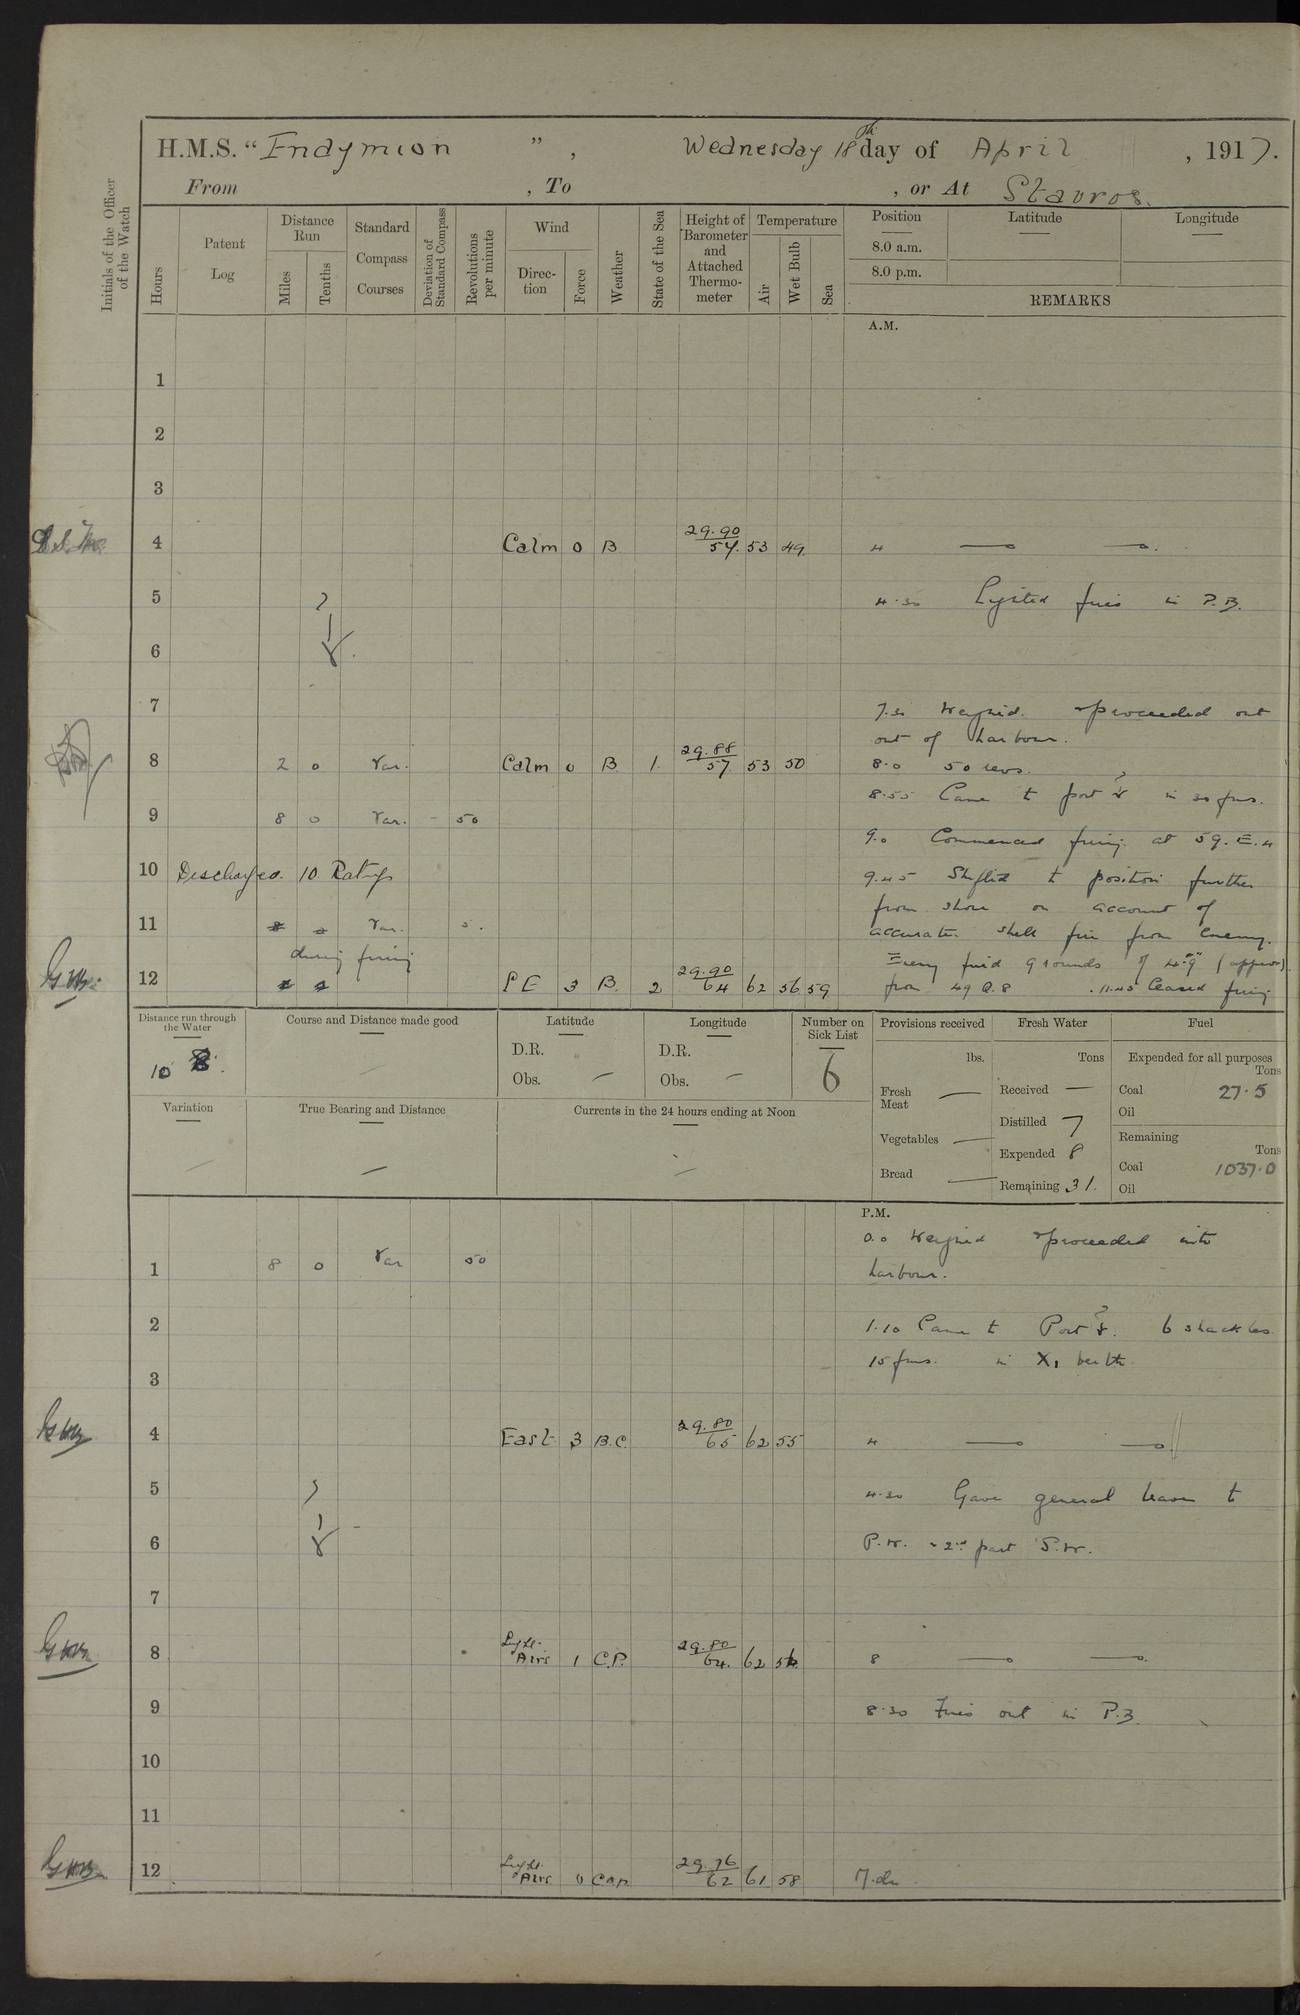 H.M.S. "Endymion", Wednesday 18th day of April, 1917.
From , To , or At Stavros.
Initials of the Officer of the Watch
Hours
Patent Log
Distance Run
Miles
Tenths
Standard Compass Courses
Deviation of Standard Compass
Revolutions per minute
Wind
Direction
Force
Weather
State of the Sea
Height of Barometer and Attached Thermometer
Temperature
Air
Wet Bulb
Sea
Position
8.0 a.m.
8.0 p.m.
Latitude
Longitude
REMARKS
A.M.
1
2
3
4 Calm 0 B 29.90 57. 53 49. 4
5 4.30 Lighted fires in P.B.
6
7 7.30 Weighed. & proceeded out
out of harbour.
8 2 0 Var. Calm 0 B 1. 29.88 57. 53 50 8.0 50 revs.
8.55 Came to port in 30 fms.
9 8 0 Var. - 50
9.0 Commenced firing at 59.E.4
10 Discharged. 10. Ratgs 9.45 Shifted to position further
from shore on account of
11 Var. accurate shell fire from enemy.
during firing
Enemy fired 9 rounds of 4.9" (approx)
12 3 B. 2 29.90 64 62 56 59 from 49 Q.8 . 11.45 Ceased firing
Distance run through the Water
10
Course and Distance made good
Latitude
D.R.
Obs. —
Longitude
D.R.
Obs. —
Number on Sick List
6
Variation
True Bearing and Distance
Currents in the 24 hours ending at Noon
Provisions received
lbs.
Fresh Meat —
Vegetables —
Bread —
Fresh Water
Tons
Received —
Distilled 7
Expended 8
Remaining 31.
Fuel
Expended for all purposes
Tons
Coal 27.5
Oil
Remaining
Tons
Coal 1037.0
Oil
P.M.
0.0 Weighed & proceeded into
1 8 0 Var 50 harbour.
2 1.10 Came to Port. 6 shackles
15 fms. in X1 berth.
3
4 East 3 B.C. 29.80 65 62 55 4
5 4.30 Gave general leave to
6 P.W. & 2nd part S.W.
7
8 Light Airs 1 C.P. 29.80 64. 62 8
9 8.30 Fires out in P.B.
10
11
12 Light Airs 0 29.76 62 61 58